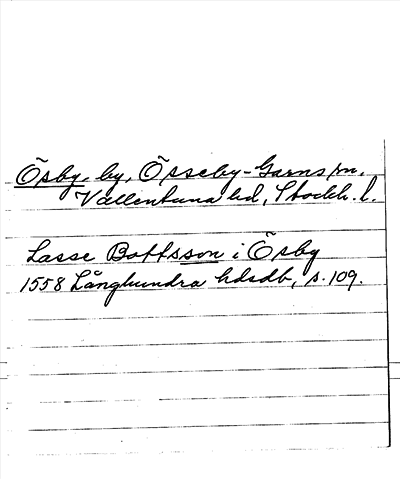 Ösby, by, Össeby-Garns sn,
Vallentuna hd, Stockh. l.
Lasse Bottsson i Ösby
1558 Långhundra hdsdb, s. 109.